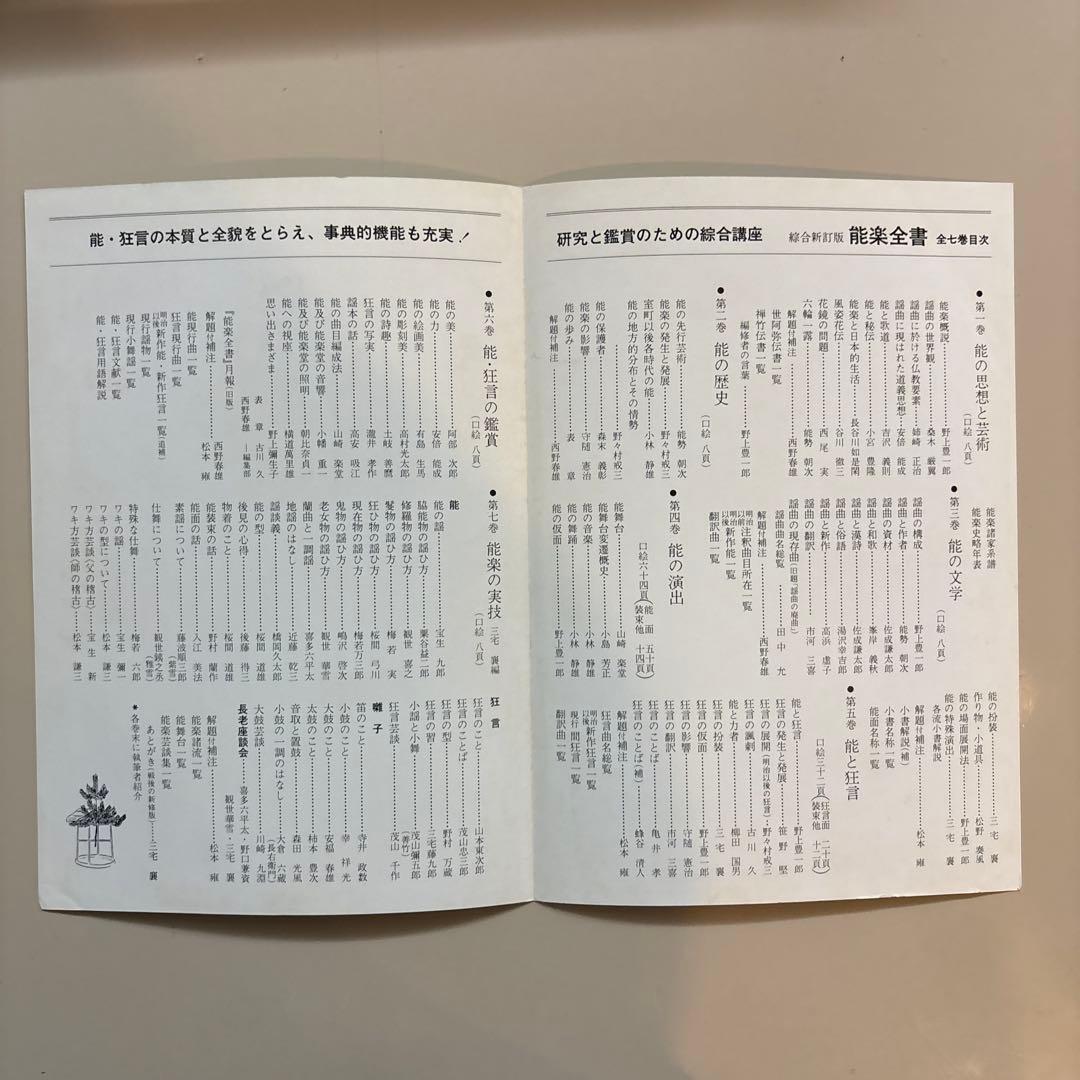 研究と鑑賞のための綜合講座 綜合新訂版 能楽全書 全七巻目次
● 第一巻 能の思想と芸術
(口絵 八頁)
能楽概説………野上豊一郎
謡曲の世界観………桑木 厳翼
謡曲に於ける仏教要素………姉崎 正治
謡曲に現はれた道義思想………安倍 能成
能と歌道………吉沢 義則
能と秘伝………小宮 豊隆
能楽と日本的生活………長谷川如是閑
風姿花伝………谷川 徹三
花鏡の問題………西尾 実
六輪一露………能勢 朝次
解題付補注………西野春雄
世阿弥伝書一覧
禅竹伝書一覧
編修者の言葉………野上豊一郎
● 第二巻 能の歴史
(口絵 八頁)
能の先行芸術………能勢 朝次
能楽の発生と発展………野々村戒三
室町以後各時代の能………小林 静雄
能の地方的分布とその情勢
………野々村戒三
能の保護者………森末 義彰
能楽の影響………守随 憲治
能の歩み………表 章
解題付補注………西野春雄
能楽諸家系譜
能楽史略年表
● 第三巻 能の文学
(口絵 八頁)
謡曲の構成………野上豊一郎
謡曲と作者………能勢 朝次
謡曲の資材………佐成謙太郎
謡曲と和歌………峯岸 義秋
謡曲と漢詩………佐成謙太郎
謡曲と俗語………湯沢幸吉郎
謡曲と新作………高浜 虚子
謡曲の翻訳………市河 三喜
謡曲の現存曲(旧題「謡曲の廃曲」)
………田中 允
謡曲曲名総覧
解題付補注………西野春雄
明治以前注釈曲目所在一覧
明治以後新作能一覧
翻訳曲一覧
● 第四巻 能の演出
口絵六十四頁(能面 五十頁 装束他 十四頁)
能舞台………山崎 楽堂
能舞台変遷概史………小島 芳正
能の音楽………小林 静雄
能の舞踊………小林 静雄
能の仮面………野上豊一郎
能の扮装………三宅 襄
作り物・小道具………松野 奏風
能の場面展開法………野上豊一郎
能の特殊演出………三宅 襄
各流小書解説
解題付補注………松本 雍
小書解説(補)
小書名称一覧
能面名称一覧
● 第五巻 能と狂言
口絵三十二頁(狂言面 二十頁 装束他 十二頁)
能と狂言………野上豊一郎
狂言の発生と発展………笹野 堅
狂言の展開(明治以後の狂言)………野々村戒三
狂言の諷刺………古川 久
能と力者………柳田 国男
狂言の扮装………三宅 襄
狂言の仮面………野上豊一郎
狂言の影響………守随 憲治
狂言の翻訳………市河 三喜
狂言のことば………亀井 孝
狂言のことば(補)………蜂谷 清人
解題付補注………松本 雍
狂言曲名総覧
明治以後新作狂言一覧
現行間狂言一覧
翻訳曲一覧
能・狂言の本質と全貌をとらえ、事典的機能も充実！
● 第六巻 能・狂言の鑑賞
(口絵 八頁)
能の美………阿部 次郎
能の力………安倍 能成
能の絵画美………有島 生馬
能の彫刻美………高村光太郎
能の詩趣………土岐 善麿
狂言の写実………瀧井 孝作
謡本の話………高安 吸江
能の曲目編成法………山崎 楽堂
能及び能楽堂の音響………小幡 重一
能及び能楽堂の照明………朝比奈貞一
能への視座………横道萬里雄
思い出さまざま………野上彌生子
表 章 古川 久
西野春雄 ―編集部
『能楽全書』月報(旧版)
解題付補注………西野春雄 松本 雍
能現行曲一覧
狂言現行曲一覧
明治以後新作能・新作狂言一覧(追補)
現行謡物一覧
現行小舞謡一覧
能・狂言文献一覧
能・狂言用語解説
● 第七巻 能楽の実技 三宅 襄編
(口絵 八頁)
能
能の謡………宝生 九郎
脇能物の謡ひ方………粟谷益二郎
修羅物の謡ひ方………観世 喜之
鬘物の謡ひ方………梅若 実
狂ひ物の謡ひ方………桜間 弓川
現在物の謡ひ方………梅若万三郎
鬼物の謡ひ方………嶋沢 啓次
老女物の謡ひ方………観世 華雪
蘭曲と一調謡………喜多六平太
地謡のはなし………近藤 乾三
謡談義………橋岡久太郎
能の型………桜間 道雄
後見の心得………後藤 得三
物着のこと………桜間 道雄
能装束の話………野村 蘭作
能面の話………入江 美法
素謡について………藤波順三郎(紫雪)
仕舞について………観世銕之丞(雅雪)
特殊な仕舞………梅若 六郎
ワキの謡………宝生 彌一
ワキの型について………松本 謙三
ワキ方芸談(父の稽古)………宝生 新
ワキ方芸談(師の稽古)………松本 謙三
狂言
狂言のこと………山本東次郎
狂言のことば………茂山忠三郎
狂言の型………野村 万蔵
狂言の習………三宅藤九郎
小謡と小舞………茂山彌五郎(善竹)
狂言芸談………茂山 千作
囃子
笛のこと………寺井 政数
小鼓のこと………幸 祥光
大鼓のこと………安福 春雄
太鼓のこと………柿本 豊次
音取と置鼓………森田 光風
小鼓の一調のはなし………大倉 六蔵(長右衛門)
大鼓芸談………川崎 九淵
長老座談会 喜多六平太 野口兼資
観世華雪 三宅 襄
解題付補注………松本 雍
能楽諸流一覧
能舞台一覧
能楽芸談集一覧
あとがき(戦後の新修版)………三宅 襄
＊各巻末に執筆者紹介